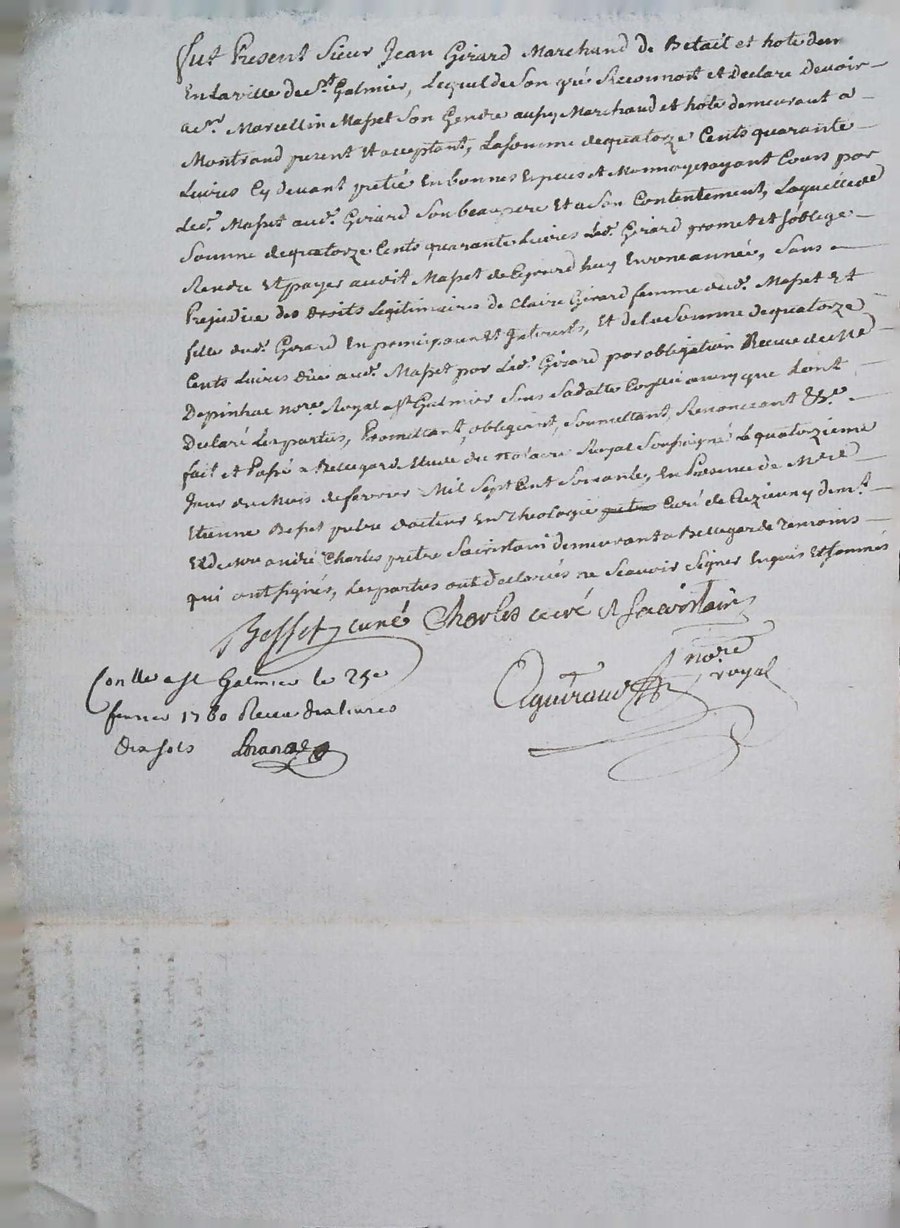 fut Present Sieur Jean Girard Marchand de Betail et hote dem
En La ville de St. Galmier, Lequel de Son gré Reconnoit et Declare Devoir
a Sr. Marcellin Masset Son Gendre aussy Marchand et hote demeurant a
Montrond present Et acceptant, La somme de quatorze Cents quarante
Livres Cy devant pretée En bonnes Especes et Monnoye ayant Cours par
Led. Masset aud. Girard Son beaupere Et a Son Contentement, Laquelle de
Somme de quatorze Cents quarante Livres Led. Girard promet et s'oblige
Rendre Et payer audit Masset de Ce jourd huy En une année, Sans
Prejudice des Droits Legitimaires de Claire Girard femme dud. Masset Et
fille dud. Girard En principaux Et Interests, Et de la Somme de quatorze
Cents Livres düe aud. Masset par Led. Girard par obligation Recue de Me
Depinhac nore. Royal a St Galmier Sous Sa datte ainsy que L'ont
Declaré Les parties, Promettant, obligeant, Soumettant, Renonceant &c.
fait et Passé a Bellegarde Etude du notaire Royal Soussigné Le quatorzieme
Jour du Mois de fevrier Mil Sept Cent Soixante, En Presence de Mre
Etienne Besset prêtre docteur En Theologie Curé de demt.
Et de Mre andré Charles prêtre Sacristain demeurant a Bellegarde Temoins
qui ont signés, Les parties ont declarées ne Scavoir Signer Enquis Et Sommés
Besset curé Charles curé et Sacristain
nore
royal
Conlle a St Galmier le 25e
fevrier 1760 Receu dix livres
dix sols